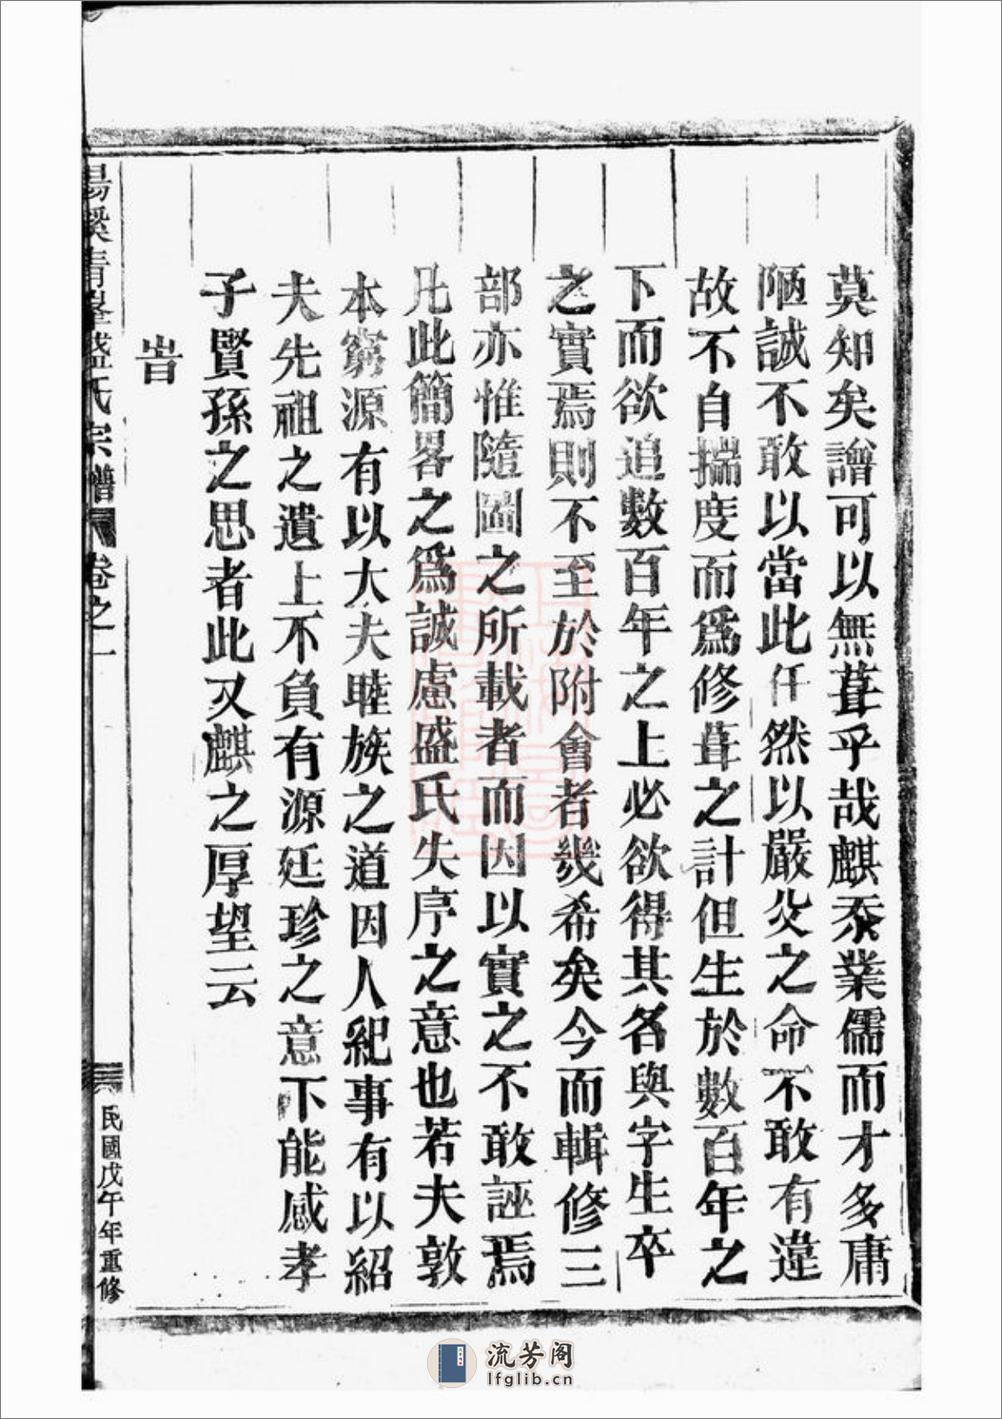 莫知矣譜可以無葺乎哉麒忝業儒而才多庸
陋誠不敢以當此任然以嚴父之命不敢有違
故不自揣度而爲修葺之計但生於數百年之
下而欲追數百年之上必欲得其名與字生卒
之實焉則不至於附會者幾希矣今而輯修三
部亦惟隨圖之所載者而因以實之不敢誣焉
凡此簡畧之爲誠慮盛氏失序之意也若夫敦
本窮源有以大夫睦族之道因人紀事有以紹
夫先祖之遺上不負有源廷珍之意下能感孝
子賢孫之思者此又麒之厚望云
旹
清峯盛氏宗譜 卷之一 民國戊午年重修
流芳阁
lfglib.cn